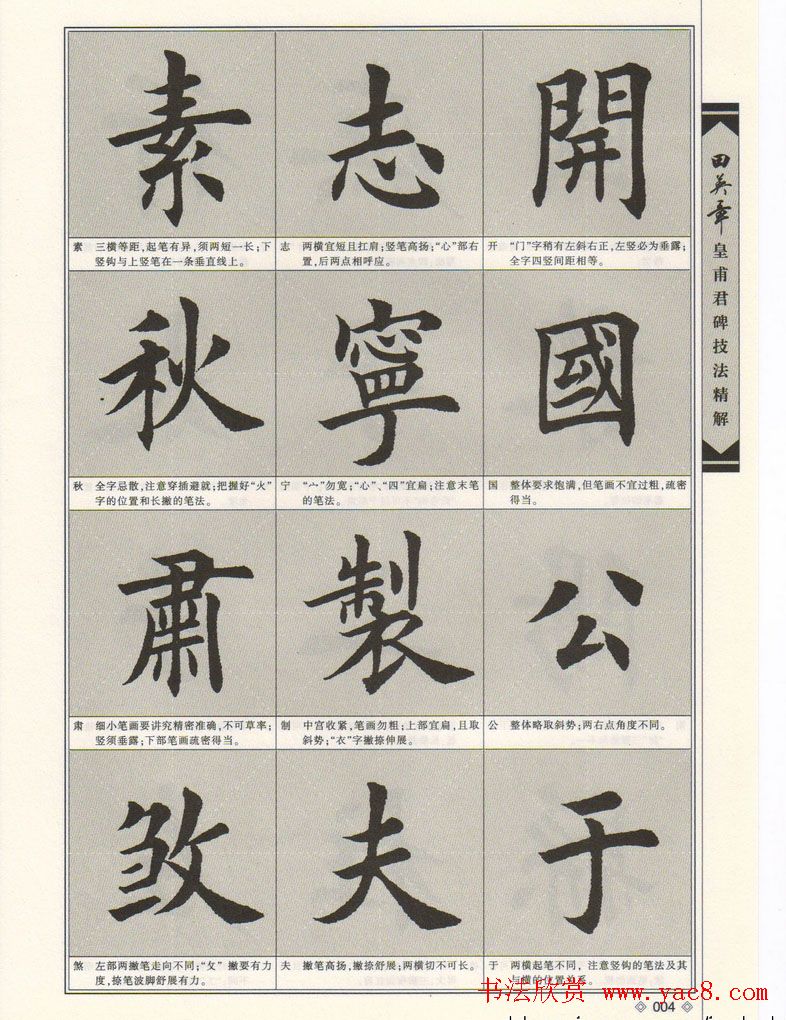 開
开 “门”字稍有左斜右正，左竖必为垂露；
全字四竖间距相等。
國
国 整体要求饱满，但笔画不宜过粗，疏密
得当。
公
公 整体略取斜势；两右点角度不同。
于
于 两横起笔不同，注意竖钩的笔法及其
与横的位置关系。
志
志 两横宜短且扛肩；竖笔高扬；“心”部右
置，后两点相呼应。
寧
宁 “宀”勿宽；“心”、“四”宜扁；注意末笔
的笔法。
製
制 中宫收紧，笔画勿粗；上部宜扁，且取
斜势；“衣”字撇捺伸展。
夫
夫 撇笔高扬，撇捺舒展；两横切不可长。
素
素 三横等距，起笔有异，须两短一长；下
竖钩与上竖笔在一条垂直线上。
秋
秋 全字忌散，注意穿插避就；把握好“火”
字的位置和长撇的笔法。
肅
肃 细小笔画要讲究精密准确，不可草率；
竖须垂露；下部笔画疏密得当。
煞
煞 左部两撇笔走向不同；“攵”撇要有力
度，捺笔波脚舒展有力。
田英章
皇甫君碑技法精解
书法欣赏 www.yac8.com
004